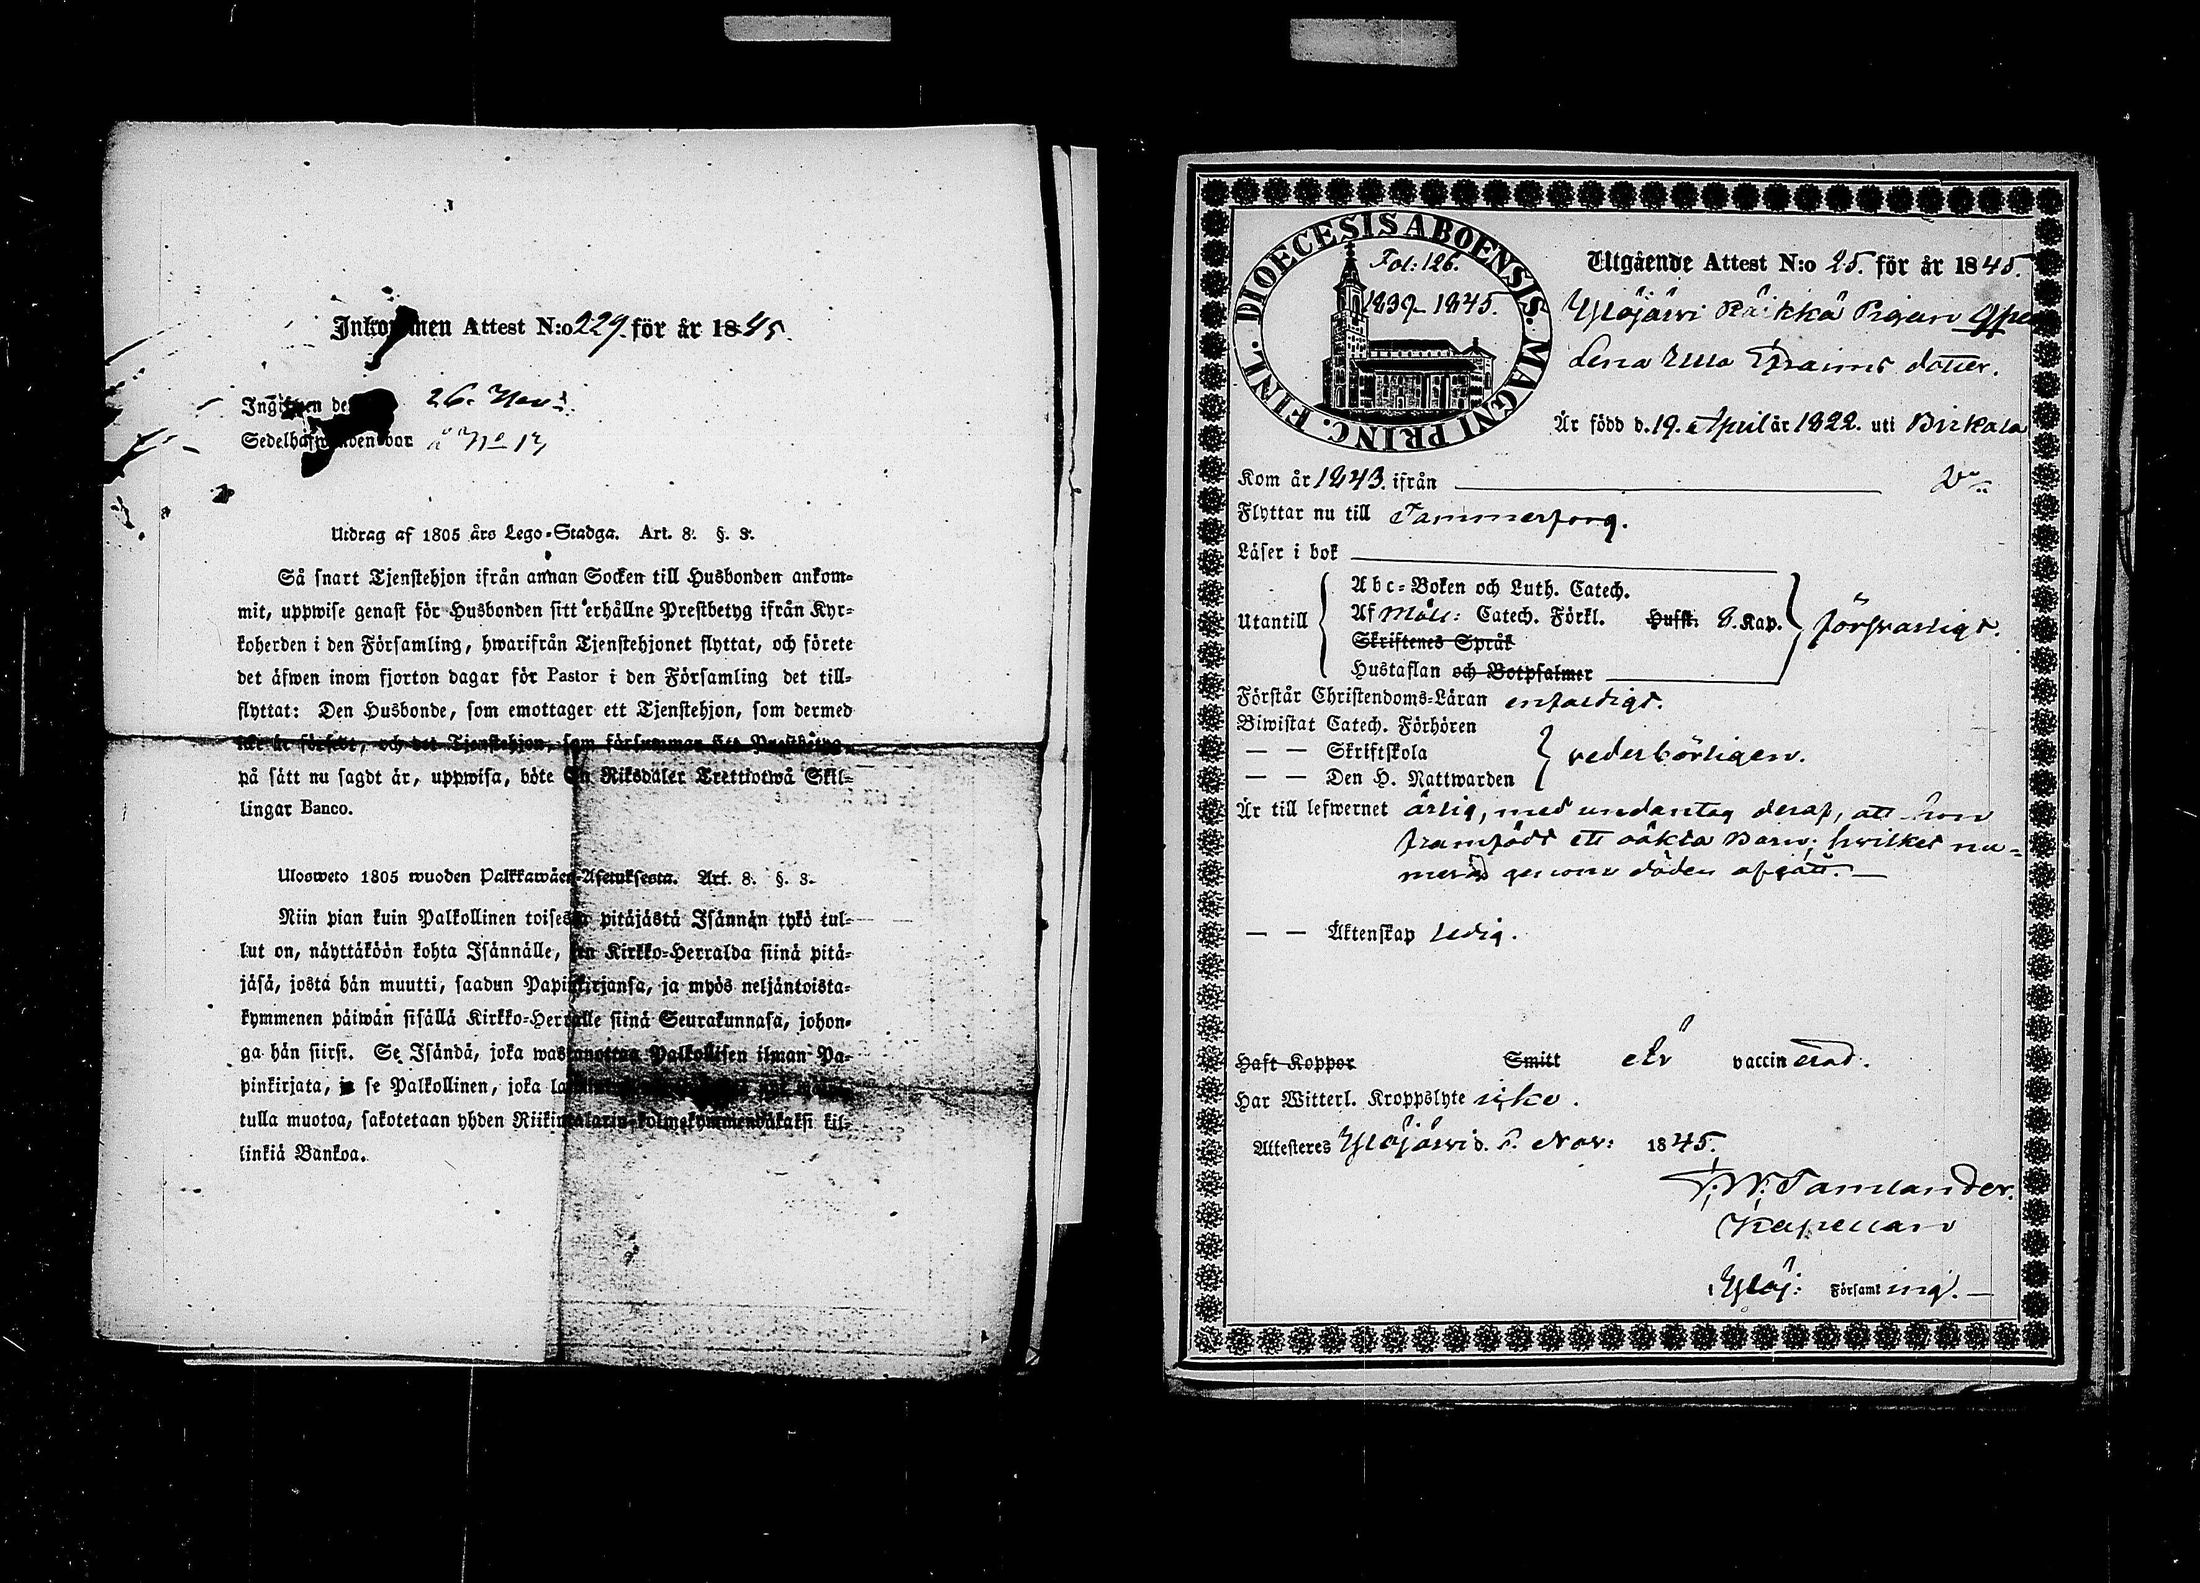 Inkommen Attest N:o 229. för år 1845.
Ingifwen den 26. Nov:
Sedelhafwanden bor å No 17
Utdrag af 1805 års Lego-Stadga. Art. 8. §. 3.
Så snart Tjenstehjon ifrån annan Socken till Husbonden ankom-
mit, uppwise genast för Husbonden sitt erhållne Prestbetyg ifrån Kyr-
koherden i den Församling, hwarifrån Tjenstehjonet flyttat, och förete
det äfwen inom fjorton dagar för Pastor i den Församling det till-
flyttat: Den Husbonde, som emottager ett Tjenstehjon, som dermed
icke är försedt, och det Tjenstehjon, som försummar sitt Prestbetyg,
på sätt nu sagdt är, uppwisa, böte En Riksdaler Trettiotwå Skil-
lingar Banco.
Ulosweto 1805 wuoden Palkkawäen-Asetuksesta. Art. 8. §. 3.
Niin pian kuin Palkollinen toisesta pitäjästä Isännän tykö tul-
lut on, näyttäköön kohta Isännälle, sen Kirkko-Herralda siinä pitä-
jäsä, josta hän muutti, saadun Papinkirjansa, ja myös neljäntoista-
kymmenen päiwän sisällä Kirkko-Herralle siinä Seurakunnasa, johon-
ga hän siirsi. Se Isändä, joka wastanottaa Palkollisen ilman Pa-
pinkirjata, ja se Palkollinen, joka
tulla muotoa, sakotetaan yhden Riikintalarin kolmekymmendäkaksi kil-
linkiä Bankoa.
DIOECESIS ABOENSIS. MAGNI PRINC. FINL.
Fol: 126.
1839-1845.
Utgående Attest N:o 25. för år 1845.
Ylöjärvi Räikkä Pigan
Lena Ulla Ephraims dotter.
Är född d. 19. April år 1822. uti Birkala
Kom år 1843. ifrån
Flyttar nu till Tammerforg.
Läser i bok
Utantill
Abc-Boken och Luth. Catech.
Af Möll: Catech. Förkl. Hufst. 8. Kap.
Skriftenes Språk
Hustaflan och Botpsalmer
försvarligt.
Förstår Christendoms-Läran enfaldigt.
Biwistat Catech. Förhören
— — Skriftskola
— — Den H. Nattwarden
vederbörligen.
Är till lefwernet ärlig, med undantag deraf, att hon
framfödt ett oäkta Barn; hwilket nu-
mera genom döden afgått. —
— — Äktenskap ledig.
Haft Koppor Smitt Är vaccinerad.
Har Witterl. Kroppslyte icke.
Attesteres Ylöjärvi d. Nov: 1845.
Tamlander.
Kapellan
Ylöj: Församling. —